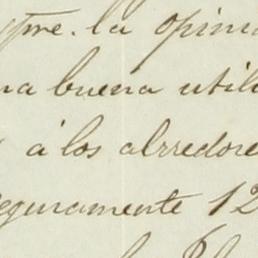 la opini
na buena utili
á los alrredore
eguramente 12